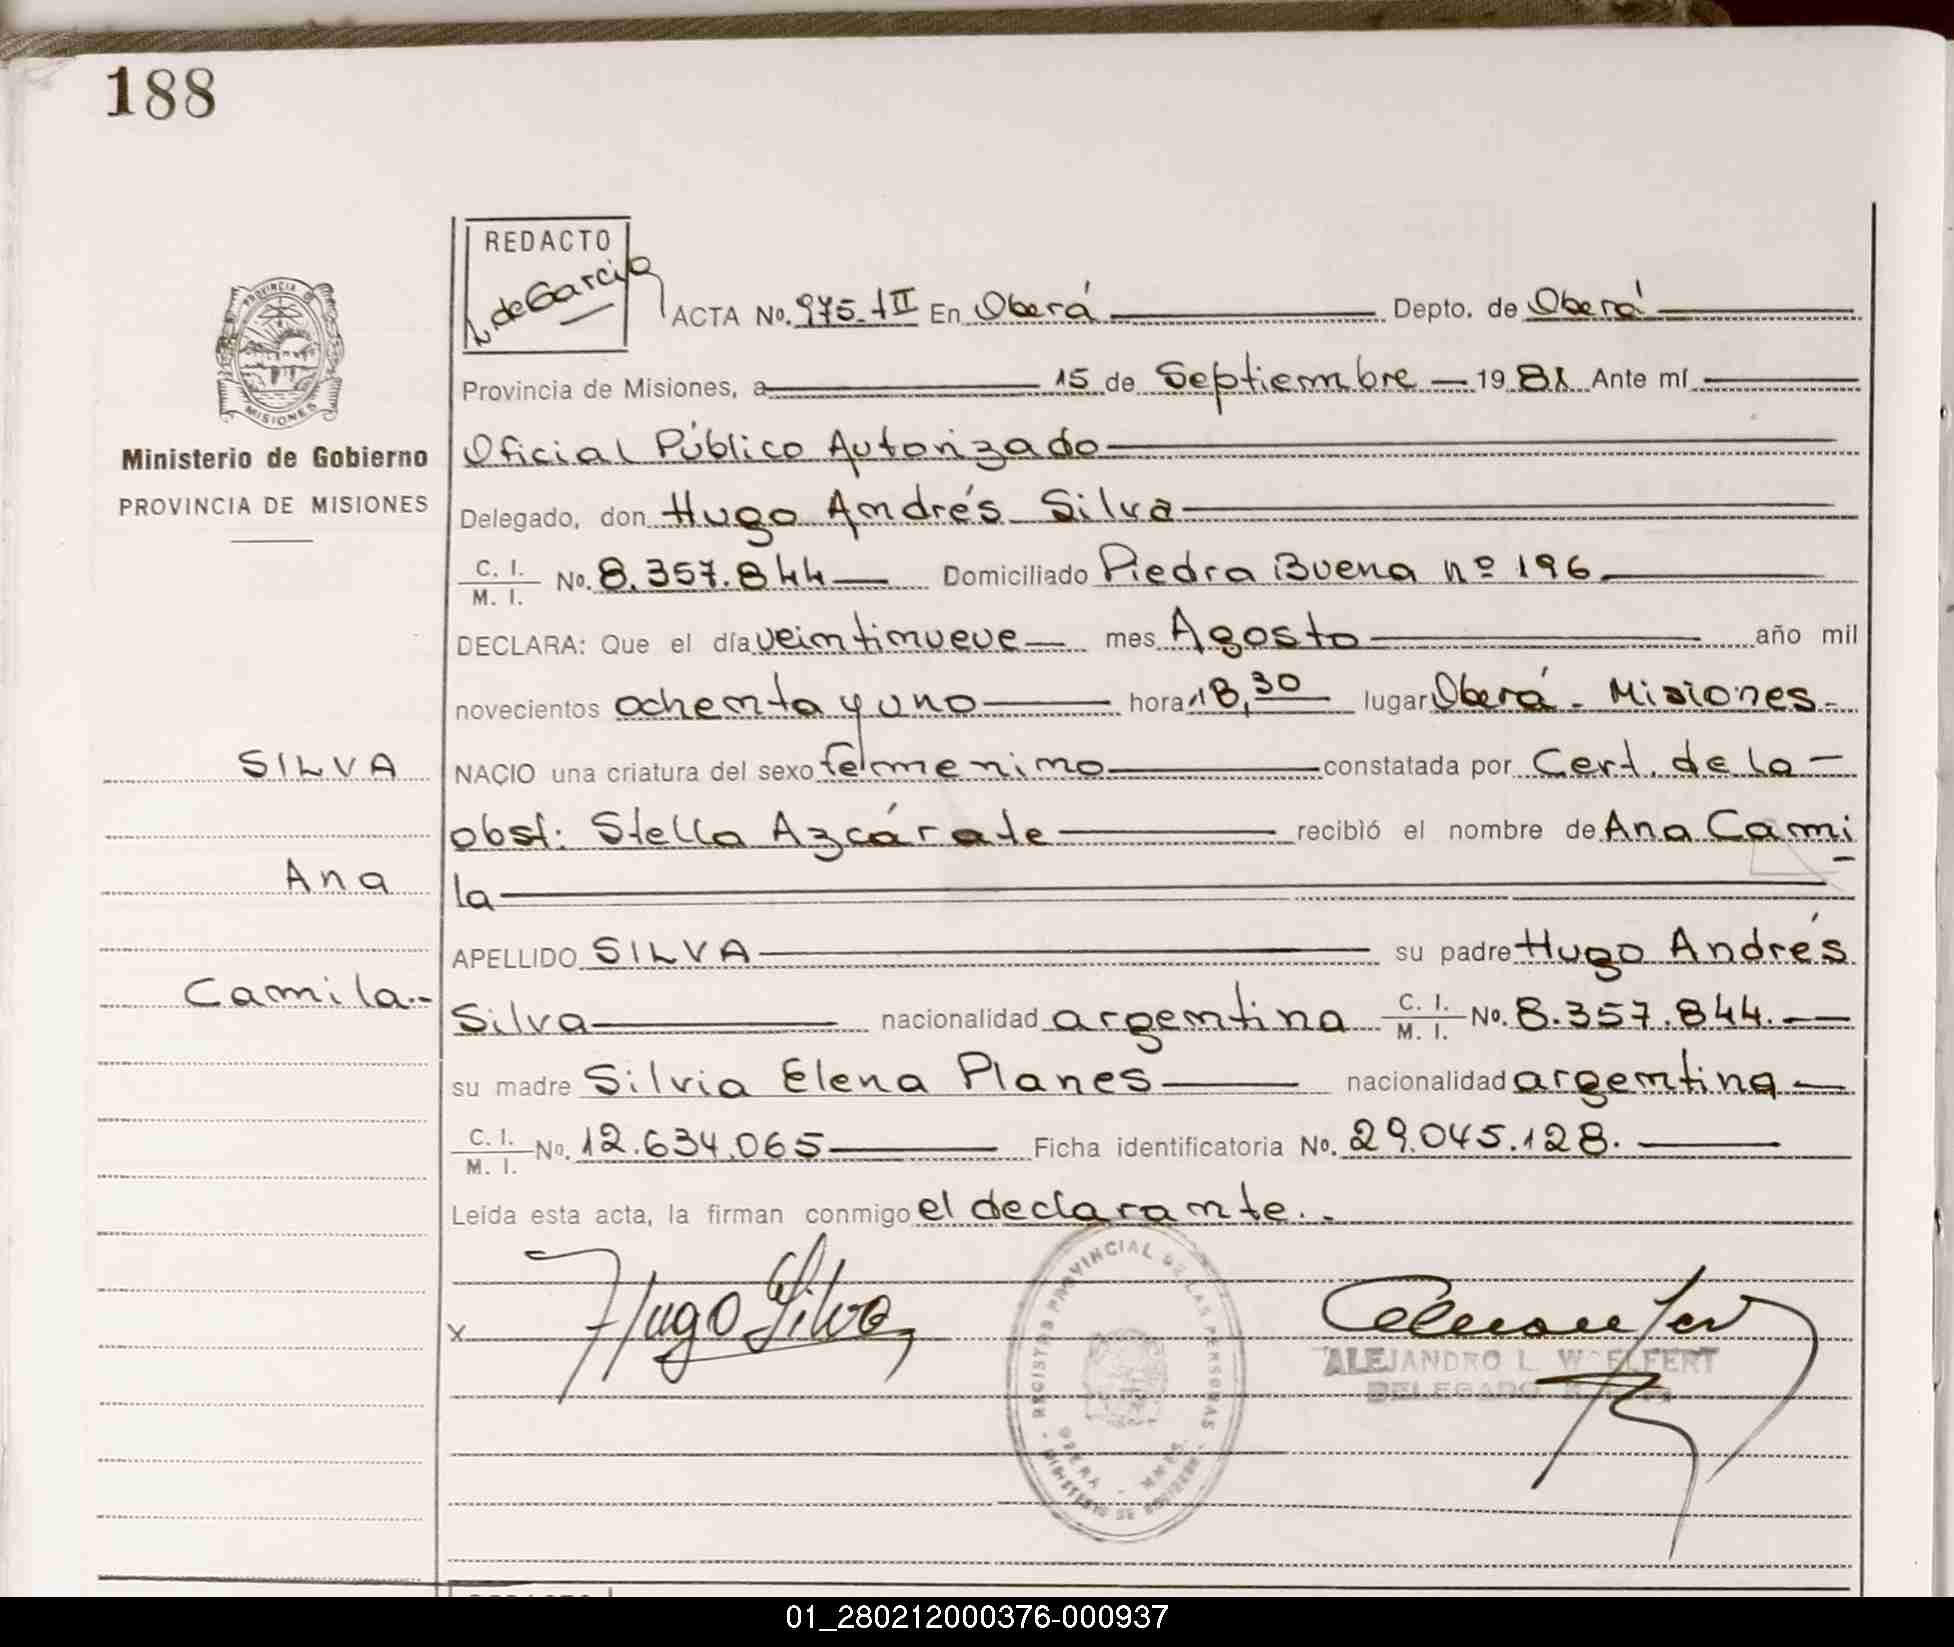 188
REDACTO
L. de Garcia
ACTA No. 975-tII En Oberá Depto. de Oberá
PROVINCIA DE
MISIONES
Provincia de Misiones, a 15 de Septiembre 1981 Ante mí
Ministerio de Gobierno
Oficial Público Autorizado
PROVINCIA DE MISIONES
Delegado, don Hugo Andrés Silva
C. I. / M. I. No. 8.357.844 Domiciliado Piedra Buena nº 196
DECLARA: Que el día veintinueve mes Agosto año mil
novecientos ochenta y uno hora 18,30 lugar Oberá - Misiones.-
SILVA
NACIO una criatura del sexo femenino constatada por Cert. de la
obst: Stella Azcárate recibió el nombre de Ana Cami
Ana
la
APELLIDO SILVA su padre Hugo Andrés
Camila.-
Silva nacionalidad argentina C. I. / M. I. No. 8.357.844.
su madre Silvia Elena Planes nacionalidad argentina
C. I. / M. I. No. 12.634.065 Ficha identificatoria No. 29.045.128.
Leída esta acta, la firman conmigo el declarante..
x Hugo Silva
REGISTRO PROVINCIAL DE LAS PERSONAS
OBERA
MINISTERIO DE GOBIERNO
ALEJANDRO L. WOELFERT
DELEGADO
01_280212000376-000937